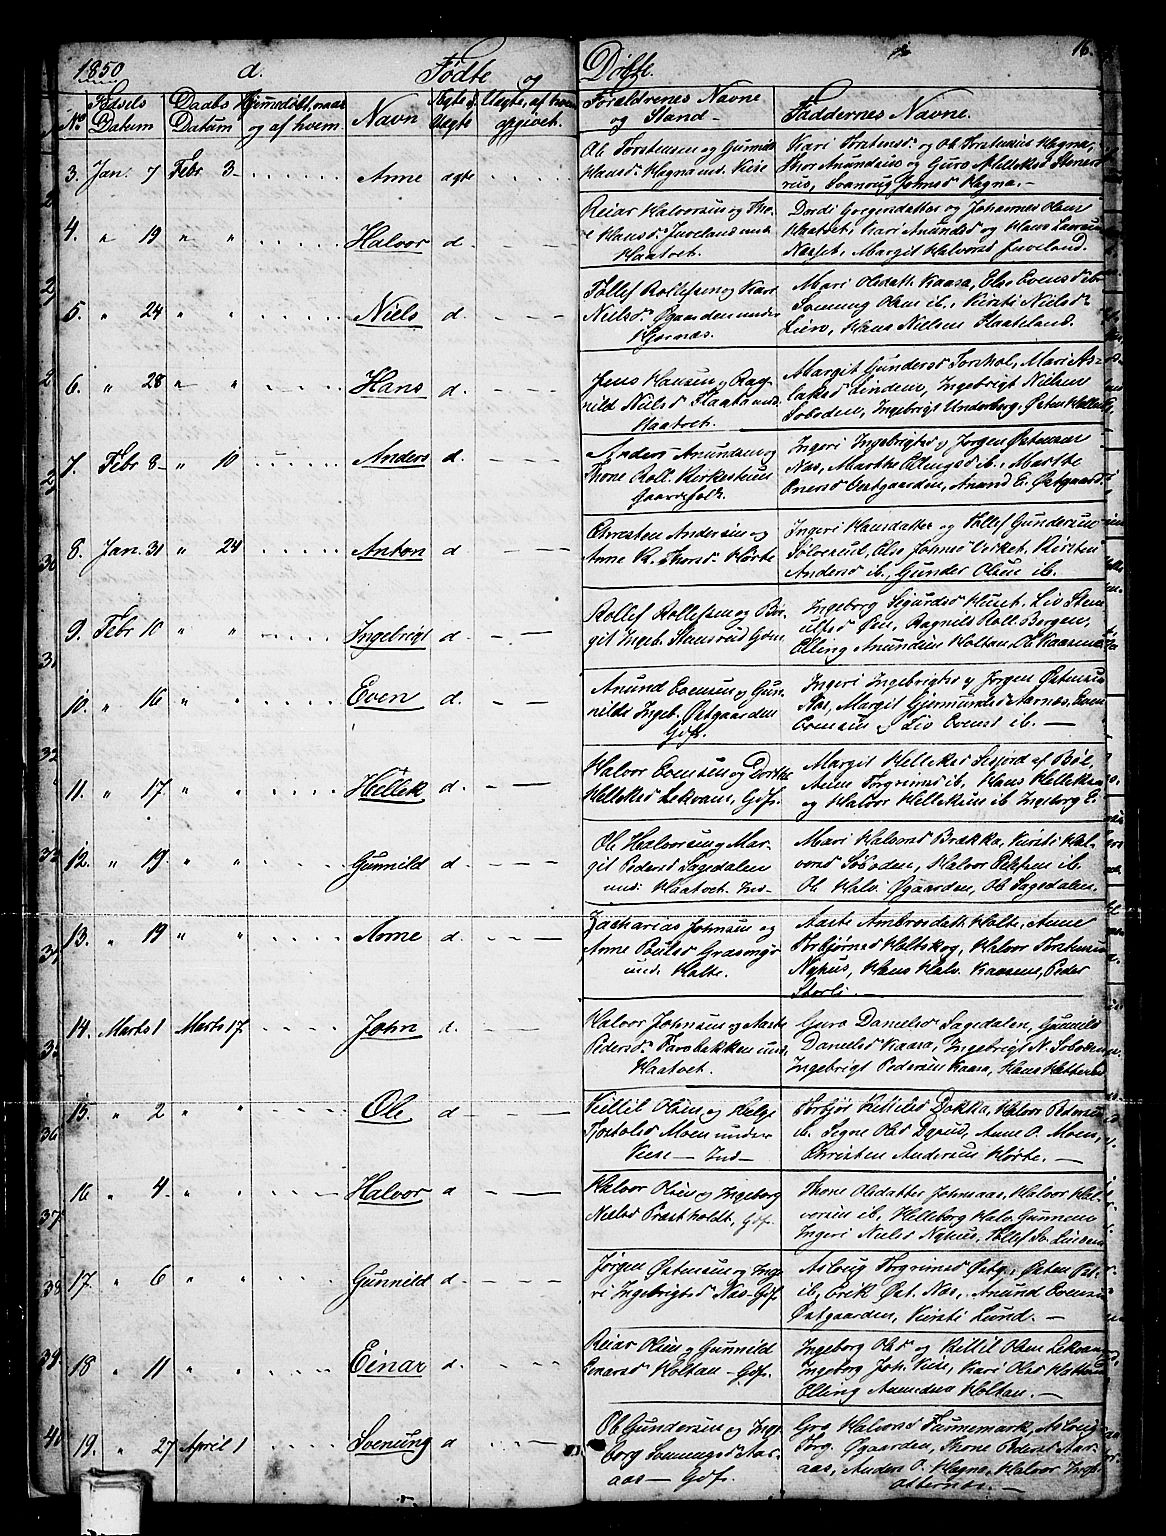 1850 d. Fødte og Døbte. 16.
No Fødsels Datum Daabs Datum Hjemmedøbt, naar og af hvem Navn Ægte el. Uægte Uægte, af hvem opgivet. Forældrenes Navne og Stand Faddernes Navne.
3. Jan. 7 Febr 3 Anne ægte
Ole Torstensen og Gunnild
Kari Torstensd. og Ole Torstensen Hagna,
Thor Anundsen og Guro
Johnsd Hagna.
4. " 19 " " Halvor d.
Reiar Halvorsen og Tho-
re Hansd. Juveland und.
Haatvet.
Dordi Gregersdatter og Johannes Olsen
Haatvet, Kari Anundsd og Hans Larsen
Naaset, Margit Halvorsd Juveland.
5. " 24 " " Niels d.
Tollef Rollefsen og Kari
Nielsd. Øgaarden under
Hjernæs.
Mari Olsdatt. Kaasa, Else Evensd ib.
Svenung Olsen ib., Kirsti Nielsd
Lien, Hans Nielsen Flaateland.
6. " 28 " " Hans d.
Jens Hansen og Rag-
nild Nielsd Flaata und.
Haatvet.
Margit Gundersd Torshol, Mari As-
laksd Lindem, Ingebrigt Nielsen
Soboden, Ingebrigt Underberg, Østen
7. Febr 8 " 10 Anders d.
Anders Anundsen og
Thone Roll. Kirkestuen
Gaardfolk.
Ingeri Ingebrigtsd og Jørgen Østensen
Næs, Marthe Ellingsd ib., Marthe
Einersd Østgaarden, Anund E. Østgaard
8. Jan. 31 " 24 Anton d
Christen Andersen og
Anne K. Thorsd. Hørte
Ingeri Hansdatter og Tollef Gundersen
Else Johnsd Virket, Kirsten
Andersd ib., Gunder Olsen ib.
9. Febr 10 " " Ingebrigt d
Rollef Rollefsen og Bor-
git Ingeb.
Ingeborg Sigurdsd Huset, Liv Sten-
Ragnild Roll. Bergen,
Elling Anundsen Holtan, Ole Kaasene
10. " 16 " " Even d.
Anund Evensen og Gun-
nild Ingeb. Østgaarden
Gdf.
Ingeri Ingebrigtsd og Jørgen Østensen
Næs, Margit Gjermundsd Aarnæs, Even
Evensen og Liv Evensd ib.
11. " 17 " " Hellek d.
Halvor Evensen og Dorthe
Helleksd Lekvam, Gdf.
Margit Helleksd Seljord af Bøl,
Anne Torgrimsd ib, Hans Helleksen
og Halvor Helleksen ib Ingeborg E.
12. " 19 " " Gunnild d.
Ole Halvorsen og Mar-
git Pedersd Sagedalen
und. Haatvet. Ind
Mari Halvorsd Brækka, Kirsti Hal-
vorsd Soboden, Halvor ib.
Ole Halv. Øgaarden, Ole Sagedalen.
13. " 19 " " Anne d.
Zacharias Johnsen og
Anne Poulsd
und. Holte.
Aaste Ambrosdatt. Holte, Anne
Torbjørnsd Holtskog, Halvor Torstensen
Nyhus, Hans Halv. Kaasene, Peder
Storli.
14. Marts 1 Marts 17 John d.
Halvor Johnsen og Aaste
Pedersd. Farobakken und.
Haatvet.
Guro Danielsd Sagedalen, Gunnild
Danielsd Kaasa, Ingebrigt N. Soboden
Ingebrigt Pedersen Kaasa, Hans
15. " 2 " " Ole d
Kittil Olsen og Helge
Tjostolsd Moen under
Kise - Ind
Torbjør Kittilsd Dokka, Halvor Pedersen
ib. Signe Olsd Dyrud, Anne O. Moen,
Christen Andersen Hørte.
16 " 4 " " Halvor d
Halvor Olsen og Ingeborg
Nielsd Præstholdt, Gdf.
Thone Olsdatter Johnsaas, Halvor Hal-
vorsen ib, Helleborg Halv. Gunnem
Ingeri Nielsd Nyhus, Tollef So. Lindem
17. " 6 " " Gunnild d.
Jørgen Østensen og Inge-
ri Ingebrigtsd Næs Gdf.
Aslaug Torgrimsd Østg. Østen
ib, Erik Øst. Næs, Anund Evensen
Østgaarden, Kirsti Lund.
18 " 11 " " Einar d.
Reiar Olsen og Gunnild
Einarsd Holtan Gdf.
Ingeborg Olsd og Kittil Olsen Lekvam
Ingeborg Joh. Kise, Kari Olsd
Elling Anundsen Holtan.
19. " 27 April 1 Svenung d
Ole Gundersen og Inge-
borg Svenungsd Aar-
aas Gdf.
Gro Halvorsd Tunnemark, Aslaug
Torg. Øgaarden, Thone Pedersd Aar-
aas, Anders O. Hagna, Halvor